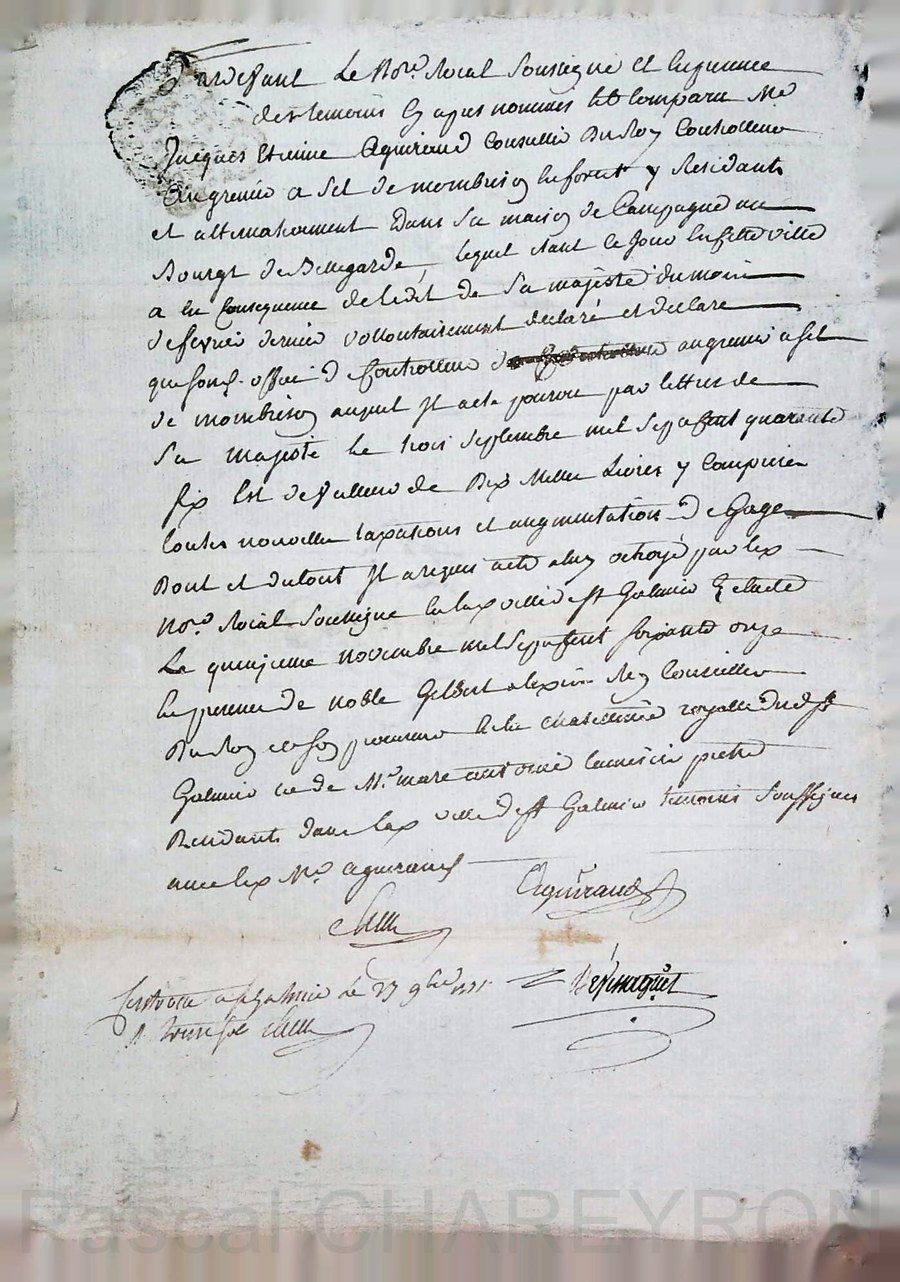 Pardevant Le No.re Roial Soussigné Et En presence
des temoins Cy apres nommés Est Comparu Me
Jacques Etienne Aguiraud Conseiller Du Roy Controlleur
Au grenier a Sel de Mombrison En forest y Residant
et alternativement Dans Sa maison de Campagne au
Bourgt de Bellegarde lequel Etant Ce Jour En Cette ville
a En Consequence de ledit de Sa majesté du mois
de fevrier dernier vollontairement declaré et declare
que Son office de Controlleur au grenier a Sel
de mombrison auquel Jl a eté pourvu par lettres de
Sa majesté Le trois Septembre mil Sept Cent quarante
Six Est de valleur de Dix Mille Livres y Compris
toutes nouvelles taxations et augmentation de Gage
Dont et du tout Jl a requis acte a luy octroyé par led.
No.re Roial Soussigné En lad. ville de St Galmier
Le quinzieme novembre mil Sept Cent Soixante onze
En presence de noble Gilbert
Du Roy et Son procureur En la Chatellenie royalle dud. St
Galmier et de Mr. marc antoine pretre
Residants dans lad. ville de St Galmier temoins Soussignés
avec led. Me. aguiraud
Aguiraud
Controllé a St Galmier Le 27 9bre 1771